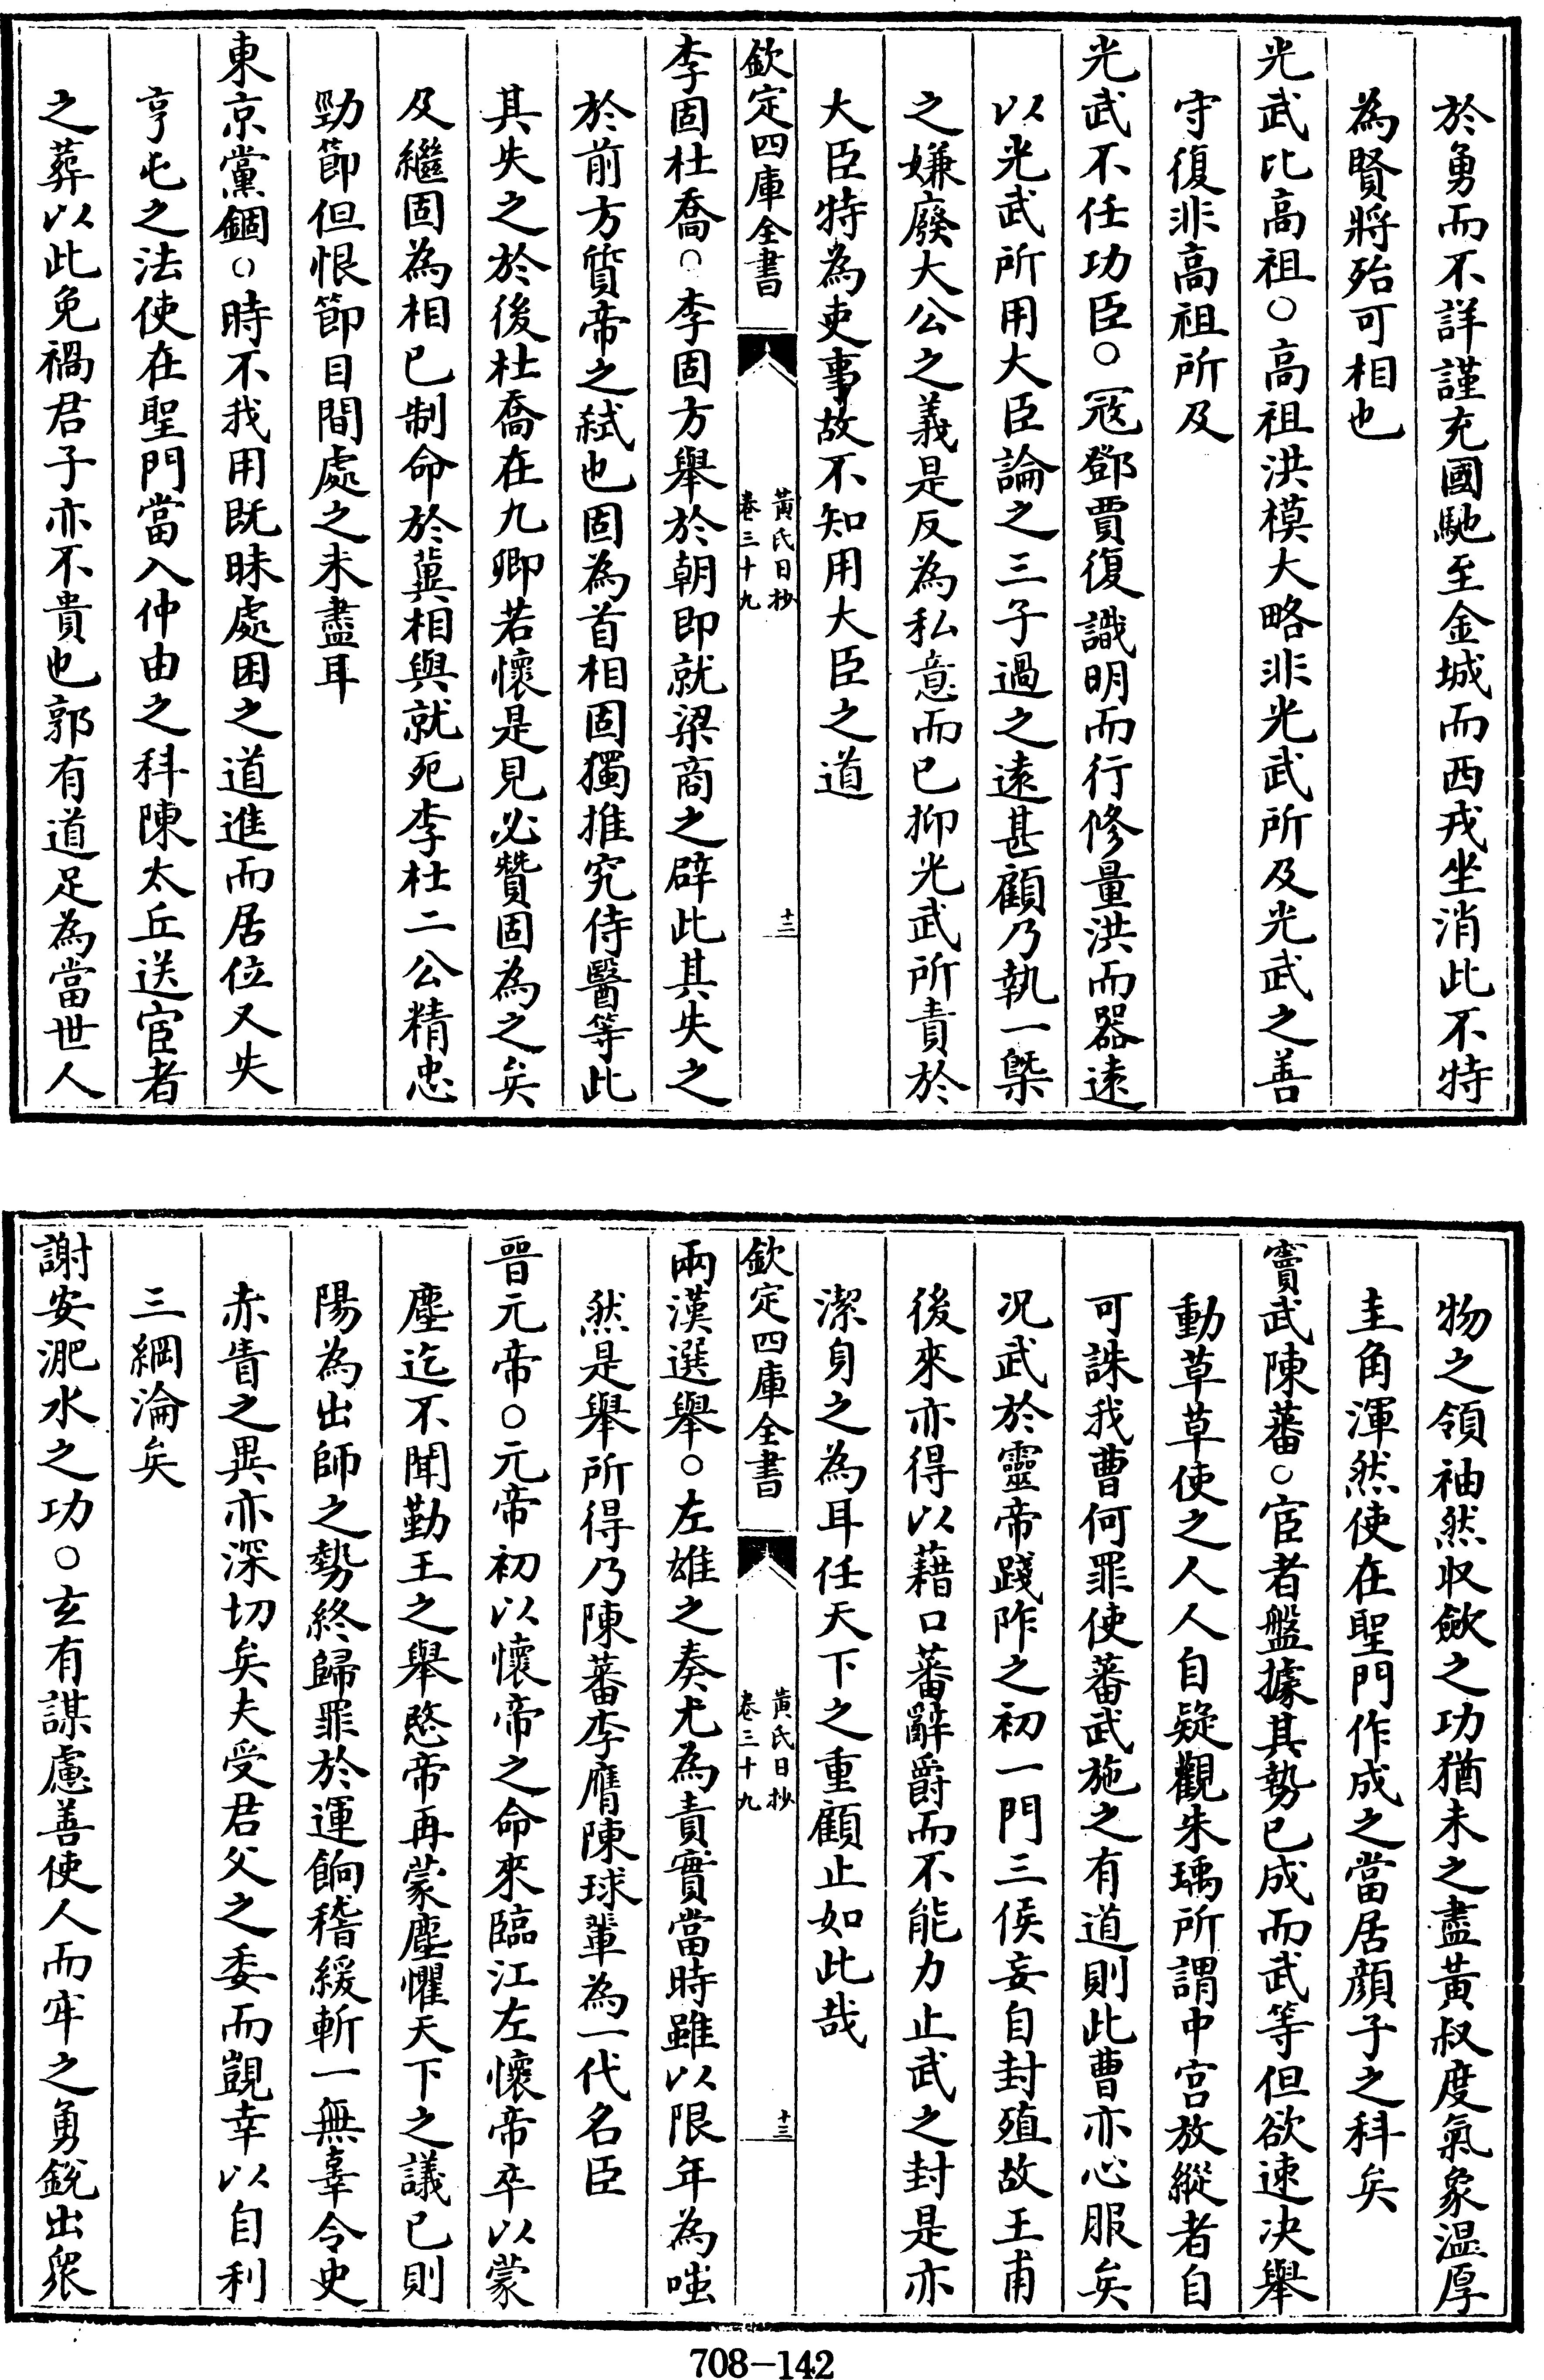 於勇而不詳謹充國馳至金城而西戎坐消此不特
為賢將殆可相也
光武比高祖○高祖洪模大略非光武所及光武之善
守復非高祖所及
光武不任功臣○冦鄧賈復識明而行修量洪而器逺
以光武所用大臣論之三子過之逺甚顧乃執一槩
之嫌廢大公之義是反為私意而已抑光武所責於
大臣特為吏事故不知用大臣之道
欽定四庫全書
黃氏日抄
卷三十九
十三
李固杜喬○李固方舉於朝即就梁商之辟此其失之
於前方質帝之弑也固為首相固獨推究侍醫等此
其失之於後杜喬在九卿若懷是見必贊固為之矣
及繼固為相已制命於冀相與就死李杜二公精忠
勁節但恨節目間處之未盡耳
東京黨錮○時不我用既昧處困之道進而居位又失
亨屯之法使在聖門當入仲由之科陳太丘送宦者
之葬以此免禍君子亦不貴也郭有道足為當世人
物之領袖然收歛之功猶未之盡黃叔度氣象温厚
圭角渾然使在聖門作成之當居顔子之科矣
竇武陳蕃○宦者盤據其勢已成而武等但欲速决舉
動草草使之人人自疑觀朱瑀所謂中宫放縱者自
可誅我曹何罪使蕃武施之有道則此曹亦心服矣
况武於靈帝踐阼之初一門三侯妄自封殖故王甫
後來亦得以藉口蕃辭爵而不能力止武之封是亦
潔身之為耳任天下之重顧止如此哉
欽定四庫全書
黃氏日抄
卷三十九
十三
兩漢選舉○左雄之奏尤為責實當時雖以限年為嗤
然是舉所得乃陳蕃李膺陳球輩為一代名臣
晉元帝○元帝初以懷帝之命來臨江左懷帝卒以蒙
塵迄不聞勤王之舉愍帝再蒙塵懼天下之議已則
陽為出師之勢終歸罪於運餉稽緩斬一無辜令史
赤眚之異亦深切矣夫受君父之委而覬幸以自利
三綱淪矣
謝安淝水之功○玄有謀慮善使人而牢之勇銳出衆
708-142